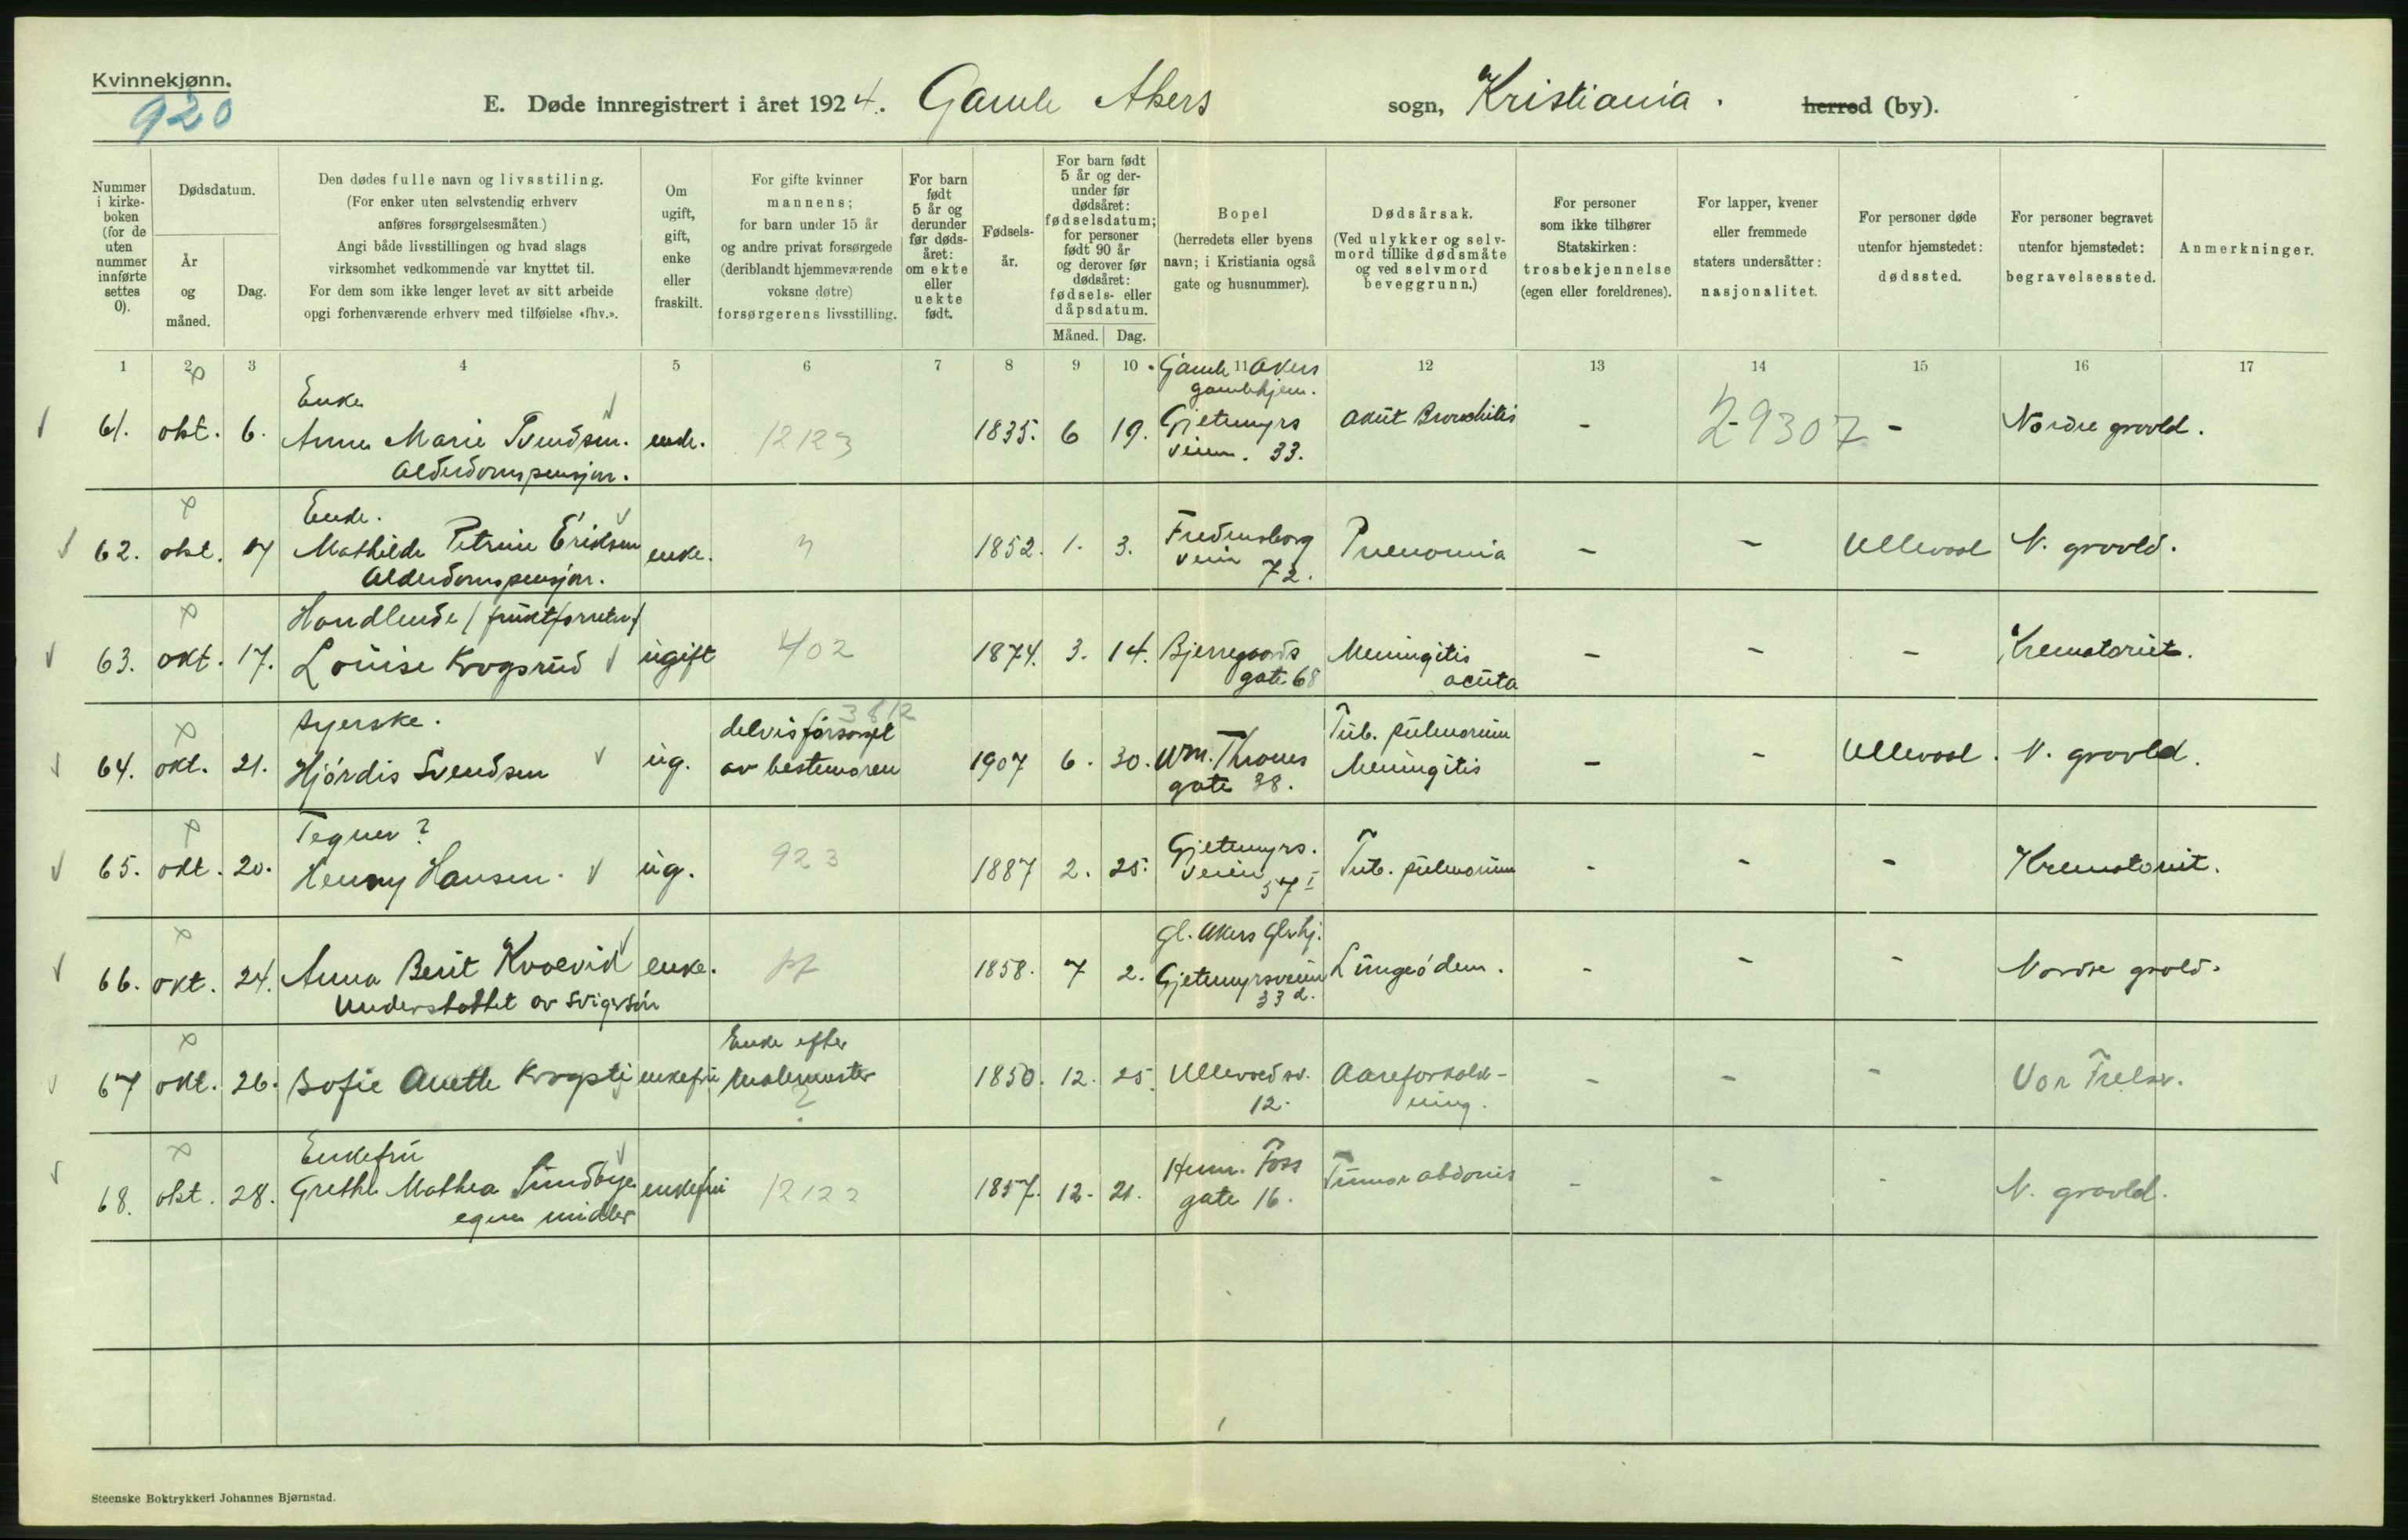 Kvinnekjønn.
920
E. Døde innregistrert i året 1924. Gamle Akers sogn, Kristiania. herred (by).
Nummer i kirkeboken (for de uten nummer innførte settes 0).
Dødsdatum.
År og måned.
Dag.
Den dødes fulle navn og livsstiling.
(For enker uten selvstendig erhverv
anføres forsørgelsesmåten.)
Angi både livsstillingen og hvad slags
virksomhet vedkommende var knyttet til.
For dem som ikke lenger levet av sitt arbeide
opgi forhenværende erhverv med tilføielse «fhv.».
Om ugift, gift, enke eller fraskilt.
For gifte kvinner
mannens;
for barn under 15 år
og andre privat forsørgede
(deriblandt hjemmeværende
voksne døtre)
forsørgerens livsstilling.
For barn født 5 år og derunder før dødsåret: om ekte eller uekte født.
Fødselsår.
For barn født 5 år og derunder før dødsåret: fødselsdatum; for personer født 90 år og derover før dødsåret: fødsels- eller dåpsdatum.
Måned. Dag.
Bopel
(herredets eller byens
navn; i Kristiania også
gate og husnummer).
Dødsårsak.
(Ved ulykker og selvmord tillike dødsmåte og ved selvmord beveggrunn.)
For personer
som ikke tilhører
Statskirken:
trosbekjennelse
(egen eller foreldrenes).
For lapper, kvener
eller fremmede
staters undersåtter:
nasjonalitet.
For personer døde
utenfor hjemstedet:
dødssted.
For personer begravet
utenfor hjemstedet:
begravelsessted.
Anmerkninger.
1 2 3 4 5 6 7 8 9 10 11 12 13 14 15 16 17
Gamle Akers gamlehjem.
Enke
61. okt. 6. Anne Marie Svendsen. enke. 12123 1835. 6 19. Gjetemyrs veien. 33. Akut Bronchitis - 29307 - Nordre gravld.
Alderdomspensjon.
Enke.
62. okt. 17 Mathilde Petrine Eriksen enke. 1852. 1. 3. Fredensborg vein 72. Pneuomia - - Ullevaal N. gravld.
Alderdomspensjon.
Handlende (fruktforretn)
63. okt. 17. Louise Krogsrud ugift 402 1874. 3. 14. Bjerregaards gate 68 Meningitis acuta - - - Krematoriet.
syerske. 3812
64. okt. 21. Hjørdis Svendsen ug. delvis forsørget av bestemoren 1907 6. 30. Wm. Thranes gate 38. Tub. pulmonum Meningitis - - Ullevaal. N. gravld.
Tegner?
65. okt. 20. Henny Hansen. ug. 923 1887 2. 25. Gjetemyrs. veien 57 I Tub. pulmonum - - - Krematoriet.
Gl. Akers Glhj.
66. okt. 24. Anna Berit Kvaevid enke. 1858. 7 2. Gjetemyrsveien 33 d. Lungeødem. - - - Nordre gravld.
Understøttet av svigersøn
67 okt. 26. Sofie Anette Krogsti enkefru Enke efter Malermester ? 1850. 12. 25. Ullevaedsv. 12. Aareforkalkning. - - - Vor Frelser.
Enkefru
68. okt. 28. Grethe Mathea Sundbye enkefru 12122 1857. 12. 21. Henr. Foss gate 16. Tumor abdomis - - - N. gravld.
egne midler
Steenske Boktrykkeri Johannes Bjørnstad.